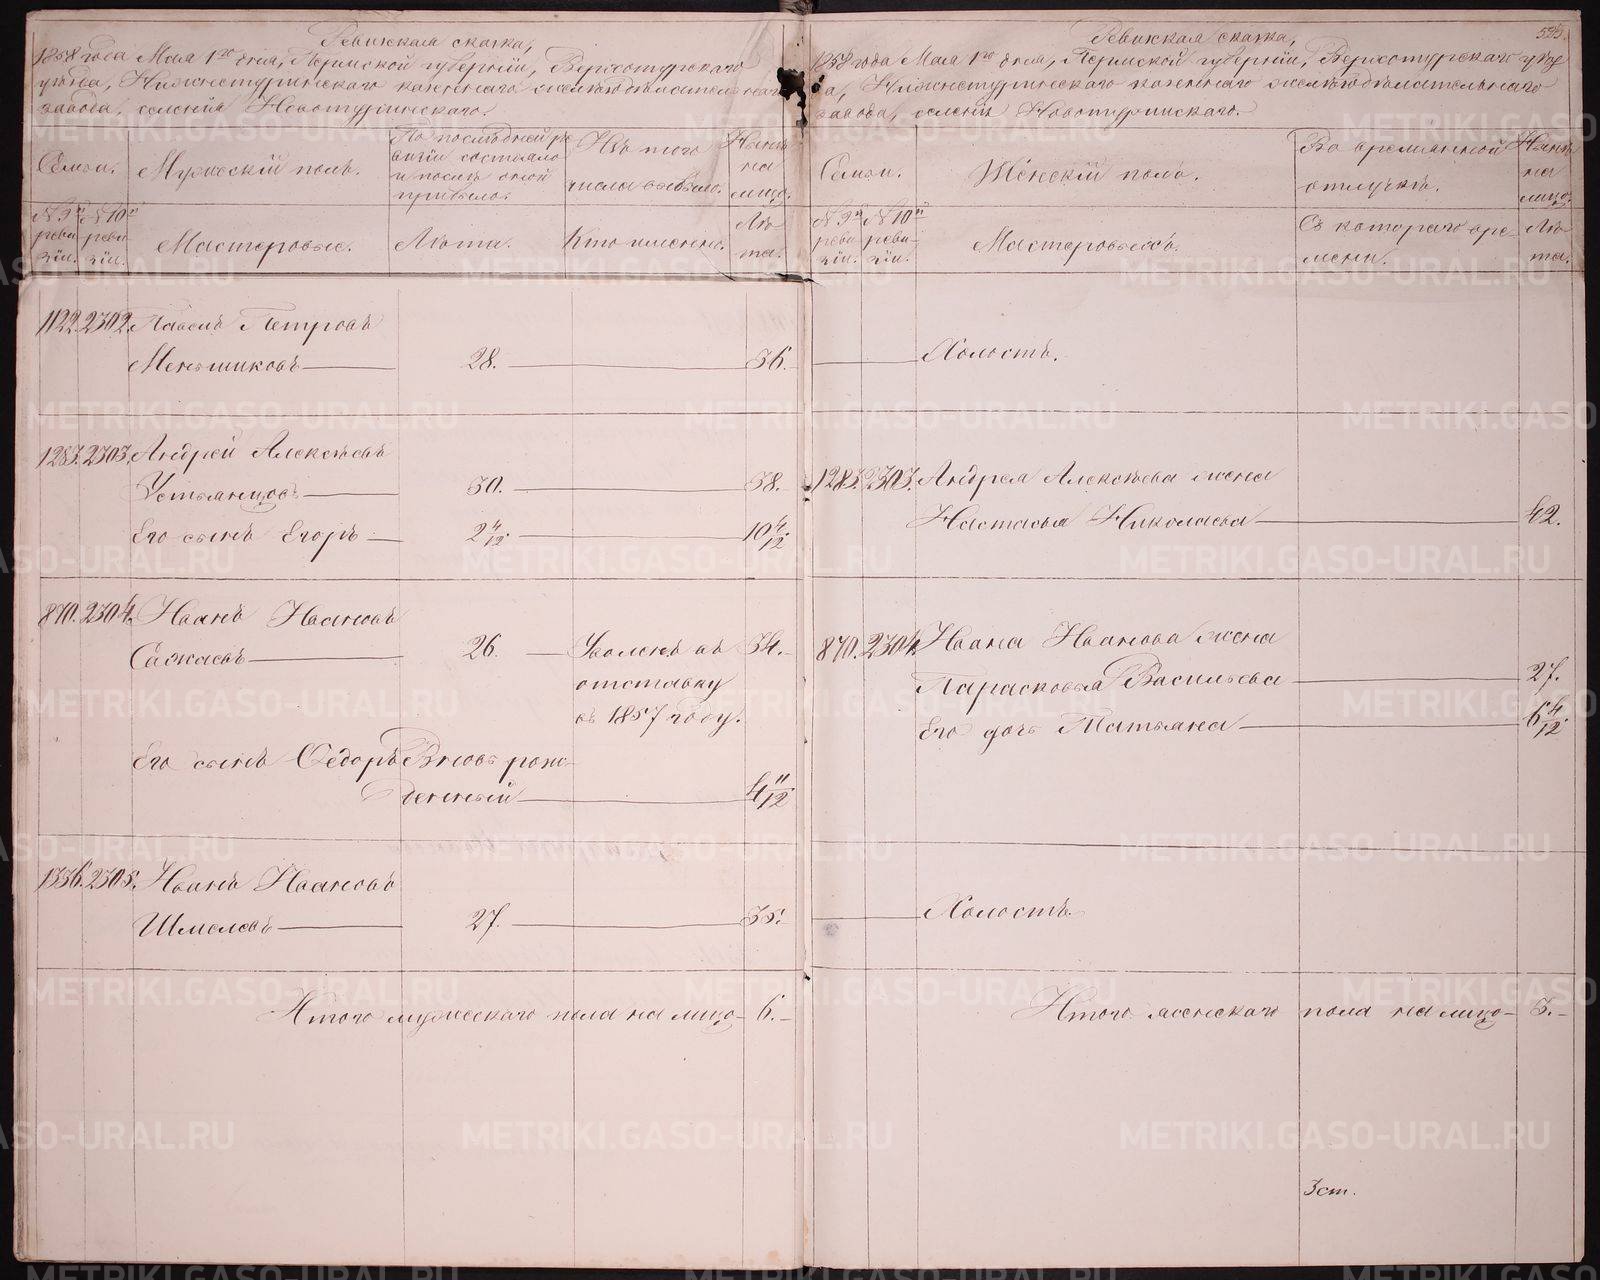 Ревижская сказка,
1858 года Мая 1го дня, Пермской губернiи, Верхотурскаго
уѣзда, Нижнетуринскаго казеннаго желѣзодѣлательнаго
завода, селенiя Новотуринскаго.
Семьи.
Мужескiй полъ.
По последней ре
визiи состояло
и послѣ оной
прибыло.
Изъ того
числа выбыло.
Нынѣ
на
лицо.
№ 9й
реви-
зiи.
№ 10й
реви-
зiи.
Мастеровые.
Лѣта.
Кто именно.
Лѣ-
та.
1122. 2302. Павелъ Петровъ
Меньшиковъ 28. 36.
1283. 2303. Андрей Алексѣевъ
Устьянцовъ 30. 38.
Его сынъ Егоръ 2 4/12. 10 4/12.
870. 2304. Иванъ Ивановъ
Сажаевъ 26. Уволенъ въ 34.
отставку
въ 1857 году.
Его сынъ Ѳедоръ Вновь рож-
денный 4 11/12
1336. 2305. Иванъ Ивановъ
Шмелевъ 27. 35.
Итого мужескаго пола на лицо 6.
535.
Ревижская сказка,
1858 года Мая 1го дня, Пермской губернiи, Верхотурскаго уѣз
да, Нижнетуринскаго казеннаго желѣзодѣлательнаго
завода, селенiя Новотуринскаго.
Семьи.
Женскiй полъ.
Во временной
отлучкѣ.
Нынѣ
на
лицо.
№ 9й
реви-
зiи.
№ 10й
реви-
зiи.
Мастеровыхъ.
Съ котораго вре-
мени.
Лѣ-
та.
Холостъ.
1283. 2303. Андрея Алексѣева жена
Настасья Николаева 42.
870. 2304. Ивана Иванова жена
Парасковья Васильева 27.
Его дочь Татьяна 6 4/12.
Холостъ.
Итого женскаго пола на лицо 3.
3 ст.
METRIKI.GASO-URAL.RU